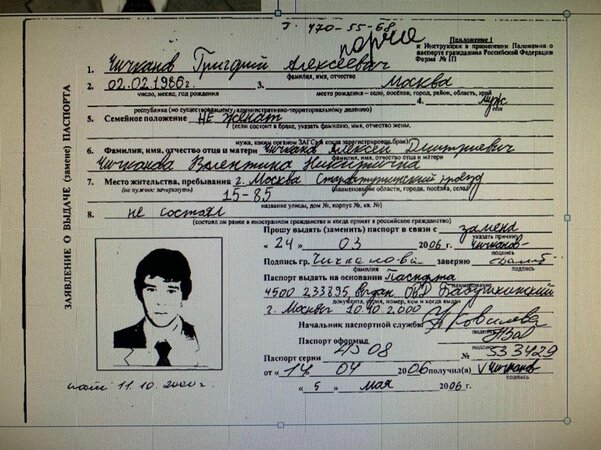 т. 470-55-68
Приложение 1
к Инструкции о применении Положения о
паспорте гражданина Российской Федерации
Форма № 1П
ЗАЯВЛЕНИЕ О ВЫДАЧЕ (замене) ПАСПОРТА
1. Чичканов Григорий Алексеевич
фамилия, имя, отчество
2. 02.02.1986г. 3. Москва
число, месяц, год рождения место рождения – село, посёлок, город, район, область, край
4. муж
республика (по существующему административно-территориальному делению) пол
5. Семейное положение не женат
(если состоит в браке, указать фамилию, имя, отчество жены,
мужа, каким органом ЗАГСа и когда зарегистрирован брак)
6. Фамилия, имя, отчество отца и матери Чичканов Алексей Дмитриевич
фамилия, имя, отчество отца и матери
Чичканова Валентина Никитична
7. Место жительства, пребывания г. Москва проезд
(не нужное зачеркнуть) наименование области, города, посёлка, села
15-85
название улицы, дом №, корпус №, кв. №)
8. не состоял
(состоял ли ранее в иностранном гражданстве и когда принят в российское гражданство)
Прошу выдать (заменить) паспорт в связи с замена
указать причину
« 24 » 03 2006 г. Чичканов
подпись
Подпись гр. Чичканова заверяю
фамилия подпись
Паспорт выдать на основании Паспорта
4500 233895 выдан ОВД Бабушкинский
документа, серия, номер, кем и когда выдан
г. Москвы 10.10.2000
Начальник паспортной службы
подпись
Паспорт оформил
подпись
Паспорт серии 45 08 № 533429
от « 14 » 04 2006 получил(а) Чичканов
подпись
« 5 » мая 2006 г.
11.10.2000 г.